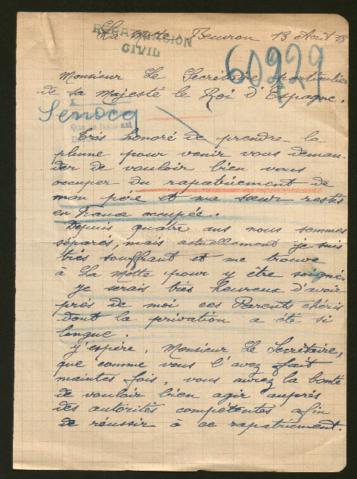 La Motte Beuvron 13 Août 18
REPATRIACION
CIVIL
60929
Monsieur Le Secrétaire particulier
de Sa Majesté Le Roi d'Espagne.
Senocq
Très honoré de prendre la
plume pour venir vous deman-
der de vouloir bien vous
occuper du rapatriement de
mon père et ma sœur restés
en France occupée.
Depuis quatre ans nous sommes
séparés, mais actuellement je suis
très souffrant et me trouve
à La Motte pour y être soigné.
je serais très heureux d'avoir
près de moi ces Parents chéris
dont la privation a été si
longue.
J'espère, Monsieur Le Secrétaire,
que comme vous l'avez fait
maintes fois, vous aurez la bonté
de vouloir bien agir auprès
des autorités compétentes afin
de réussir à ce rapatriement.